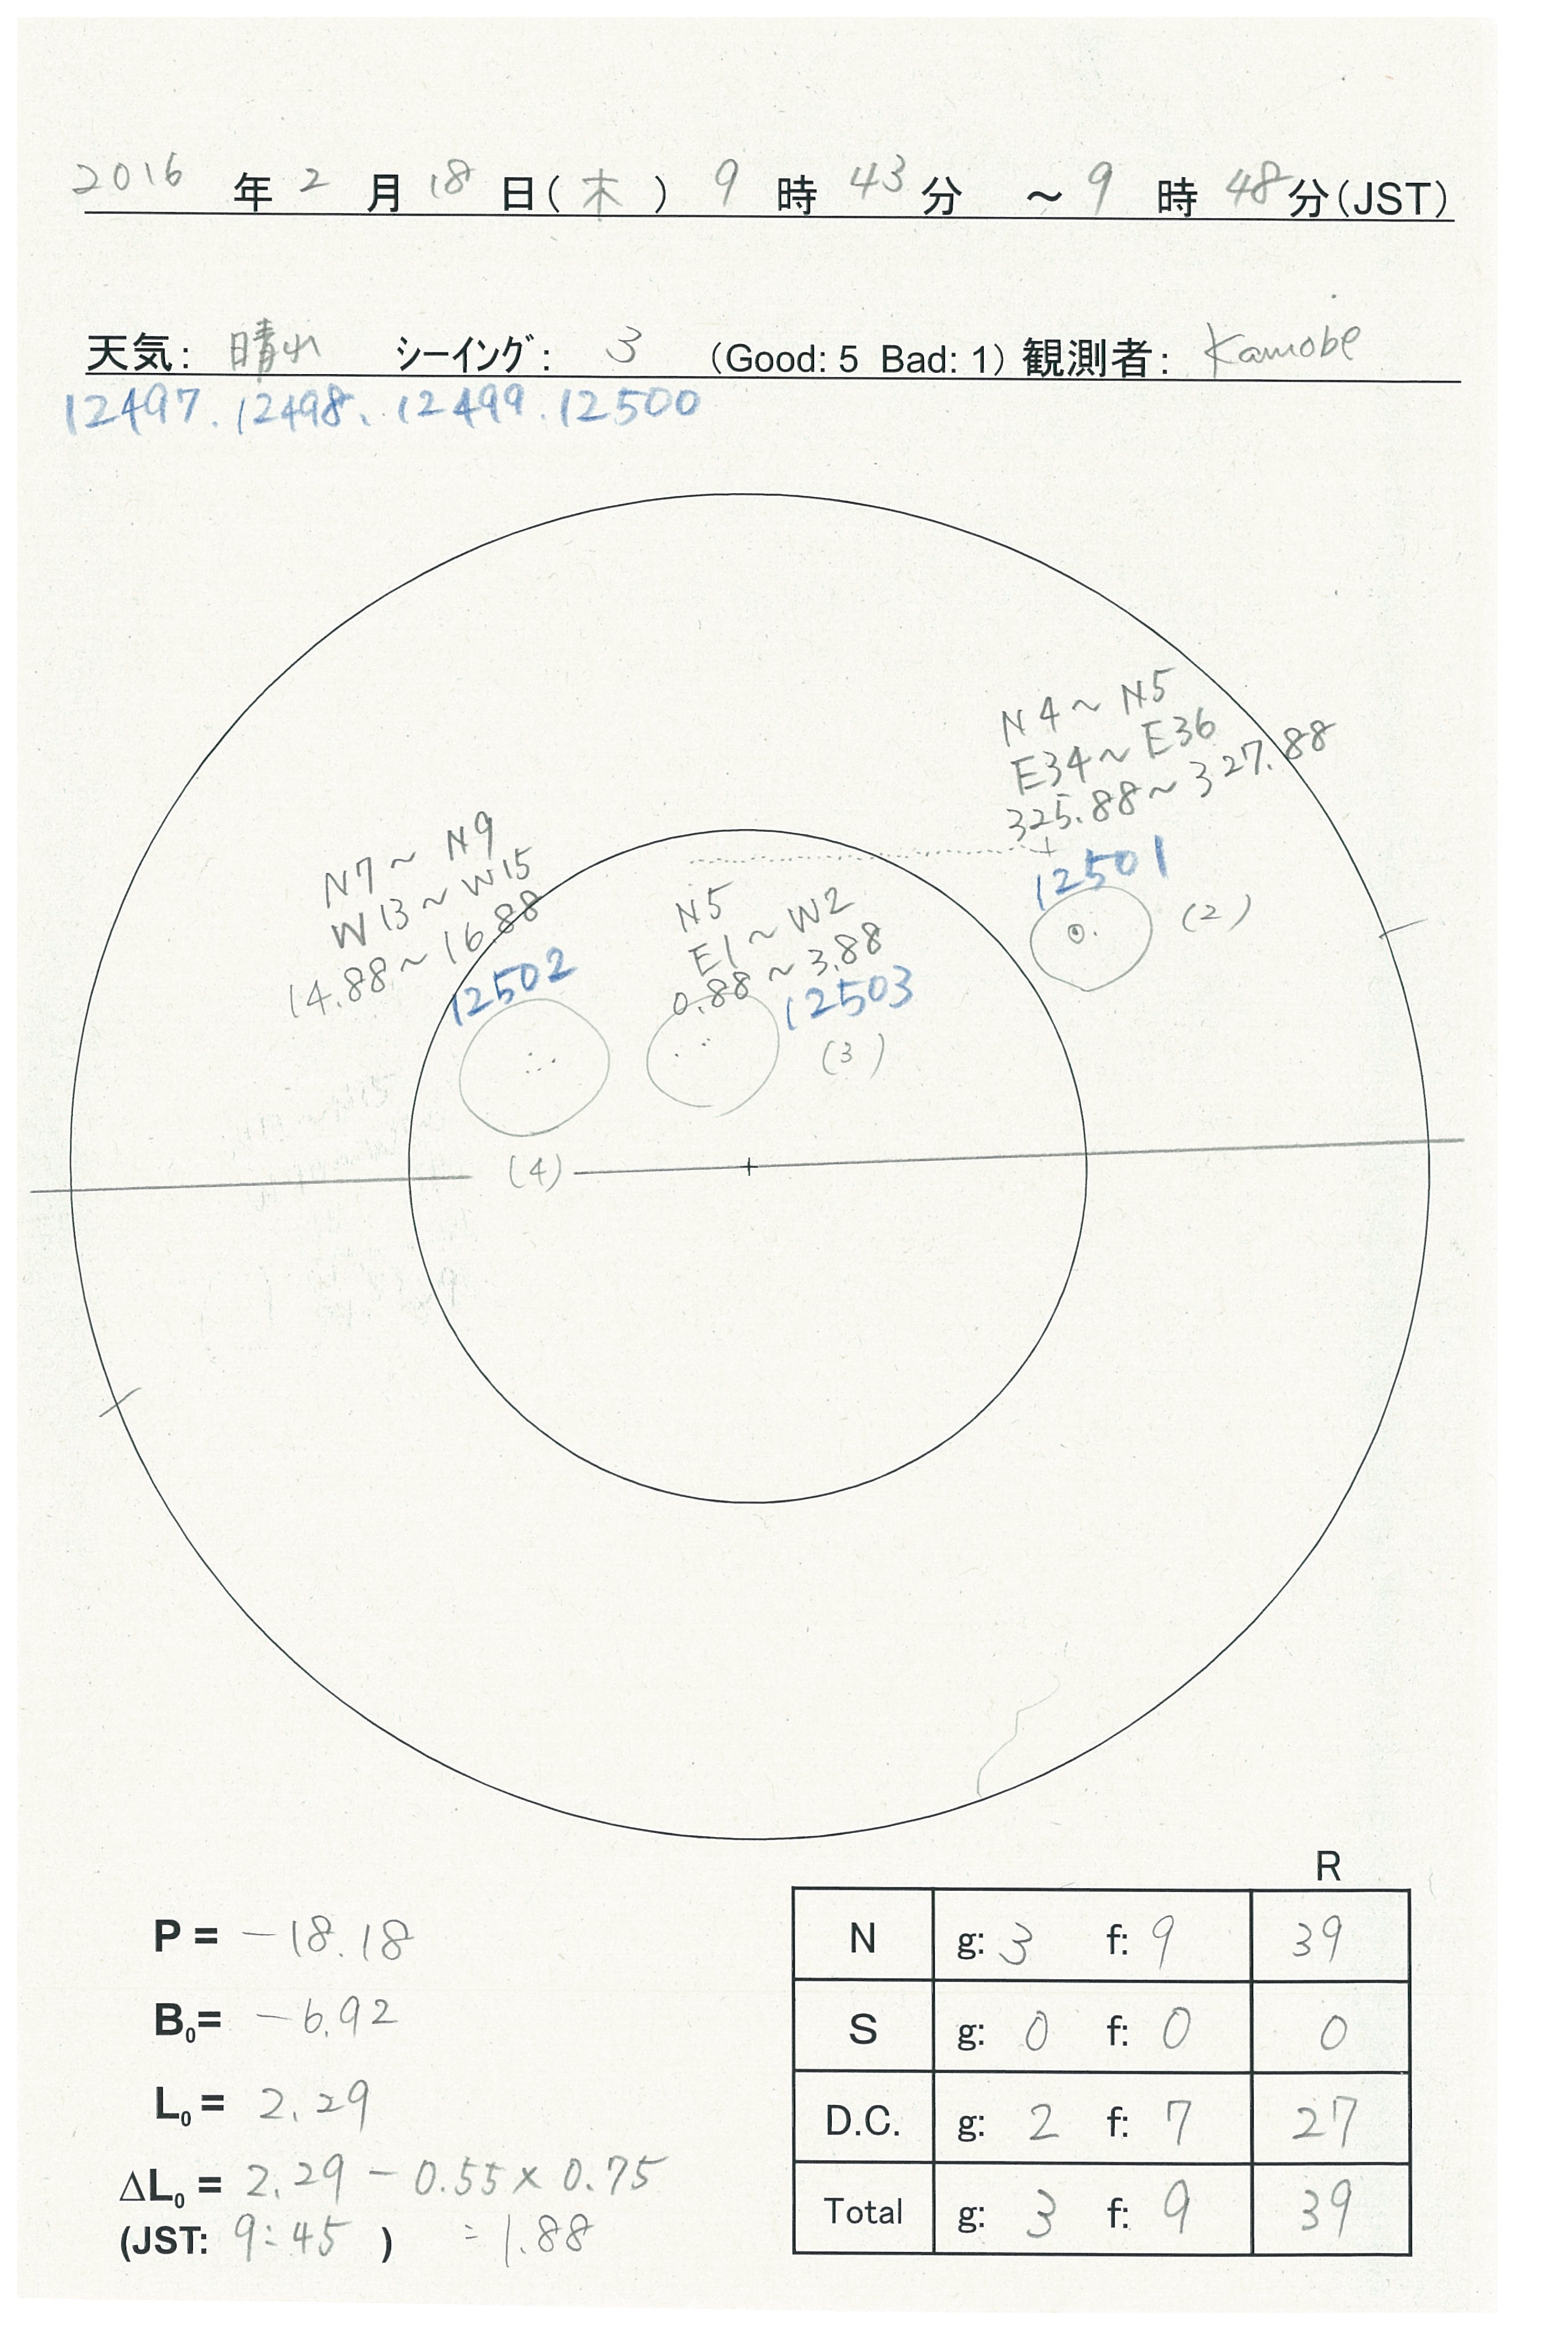 2016 年 2 月 18 日(木) 9 時 43 分 ~ 9 時 48 分(JST)
天気: 晴れ シーイング: 3 (Good: 5 Bad: 1) 観測者: Kamobe
12497. 12498. 12499. 12500
N4~N5
E34~E36
325.88~327.88
12501
(2)
N7~N9
W13~W15
14.88~16.88
12502
(4)
N5
E1~W2
0.88~3.88
12503
(3)
P = -18.18
B0= -6.92
L0= 2.29
ΔL0= 2.29 - 0.55×0.75
(JST: 9:45 ) = 1.88
R
N g: 3 f: 9 39
S g: 0 f: 0 0
D.C. g: 2 f: 7 27
Total g: 3 f: 9 39